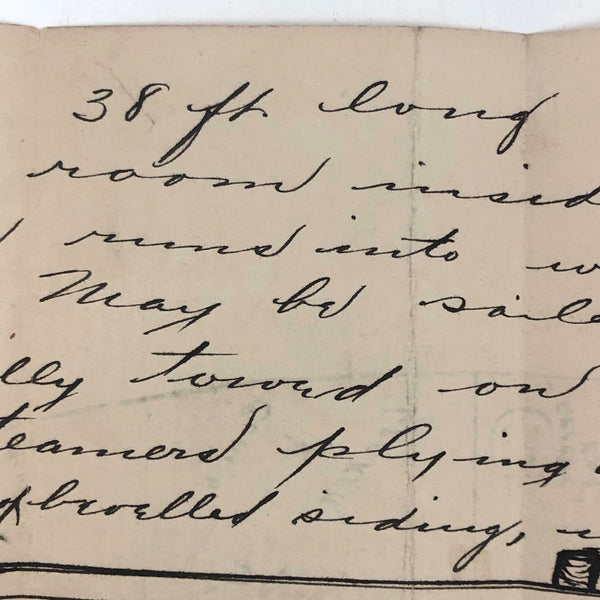 38 ft long
room insid
runs into w
May be saile
lly toward on
eamers plying
bevelled siding,